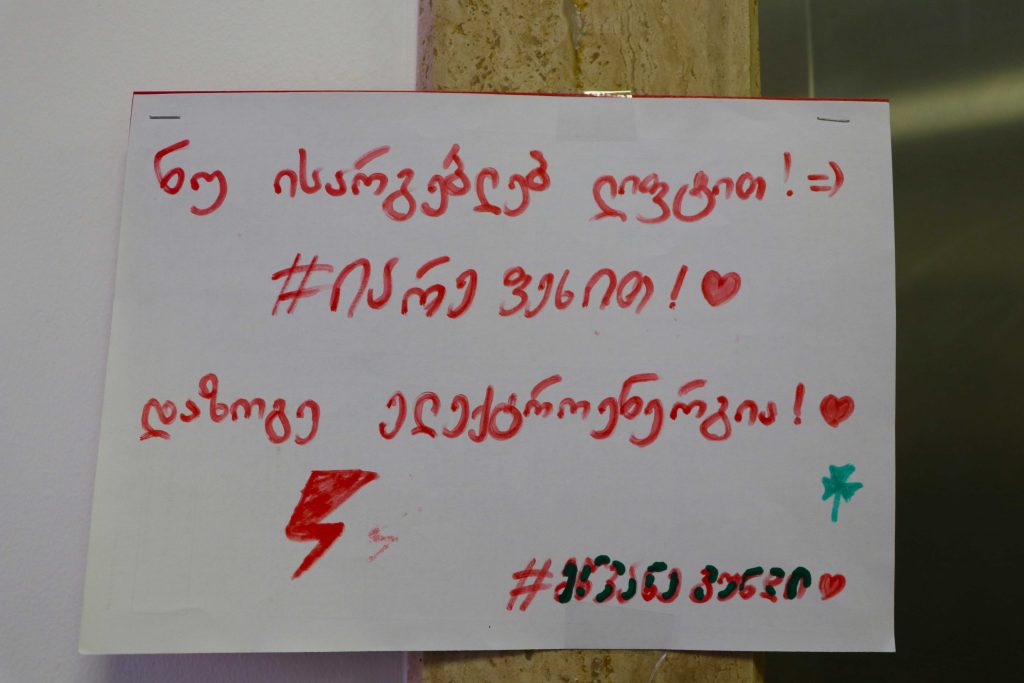 ნუ ისარგებლებ ლიფტით! =)
#იარე ფეხით! ♥
დაზოგე ელექტროენერგია! ♥
#მწვანე გუნდი ♥